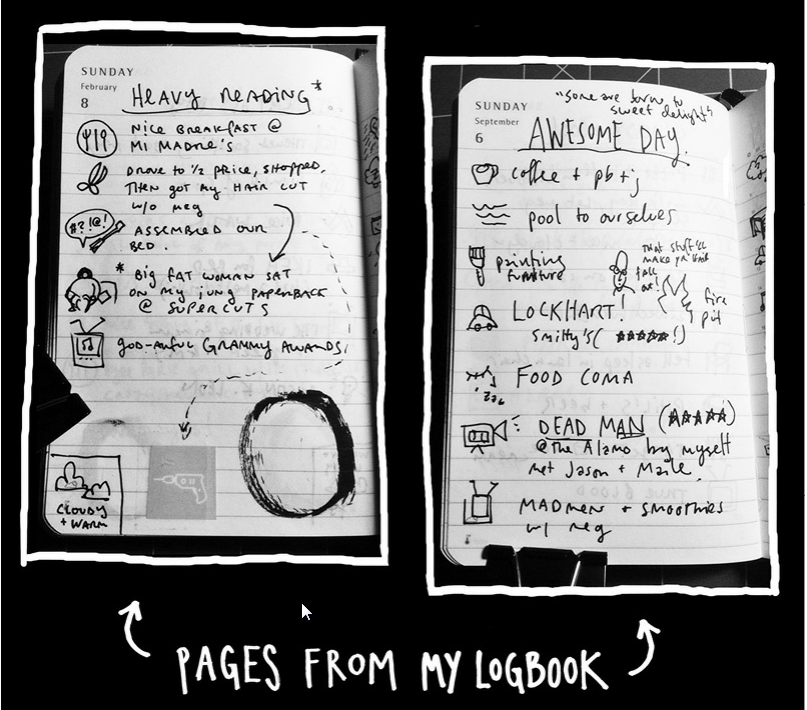 SUNDAY
February
8
HEAVY READING*
NICE BREAKFAST @
MI MADRE'S
DROVE TO 1/2 PRICE, SHOPPED,
THEN GOT MY HAIR CUT
W/O MEG
#?!@!
ASSEMBLED OUR
BED.
* BIG FAT WOMAN SAT
ON MY JUNG PAPERBACK
@ SUPERCUTS
GOD-AWFUL GRAMMY AWARDS!
CLOUDY
+ WARM
SUNDAY
September
6
"some are born to
sweet delight"
AWESOME DAY.
coffee + pb+j
pool to ourselves
painting
furniture
THAT STUFF'LL
MAKE YR HAIR
FALL
OUT!
fire
pit
LOCKHART!
Smitty's (★★★★★!)
FOOD COMA
zzz
DEAD MAN (★★★★★)
@ The Alamo by myself
met Jason +
MADMEN + SMOOTHIES
w/ meg
PAGES FROM MY LOGBOOK